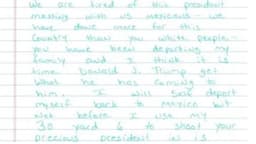 We are tired of this president
messing with us mexicans - we
have done more for this
country than you white people -
you have been deporting my
family and I think it is
time Donald J. Trump get
what he has coming to
him. I will self deport
myself back to Mexico but
not before I use my
30 yard 6 to shoot your
precious president in is